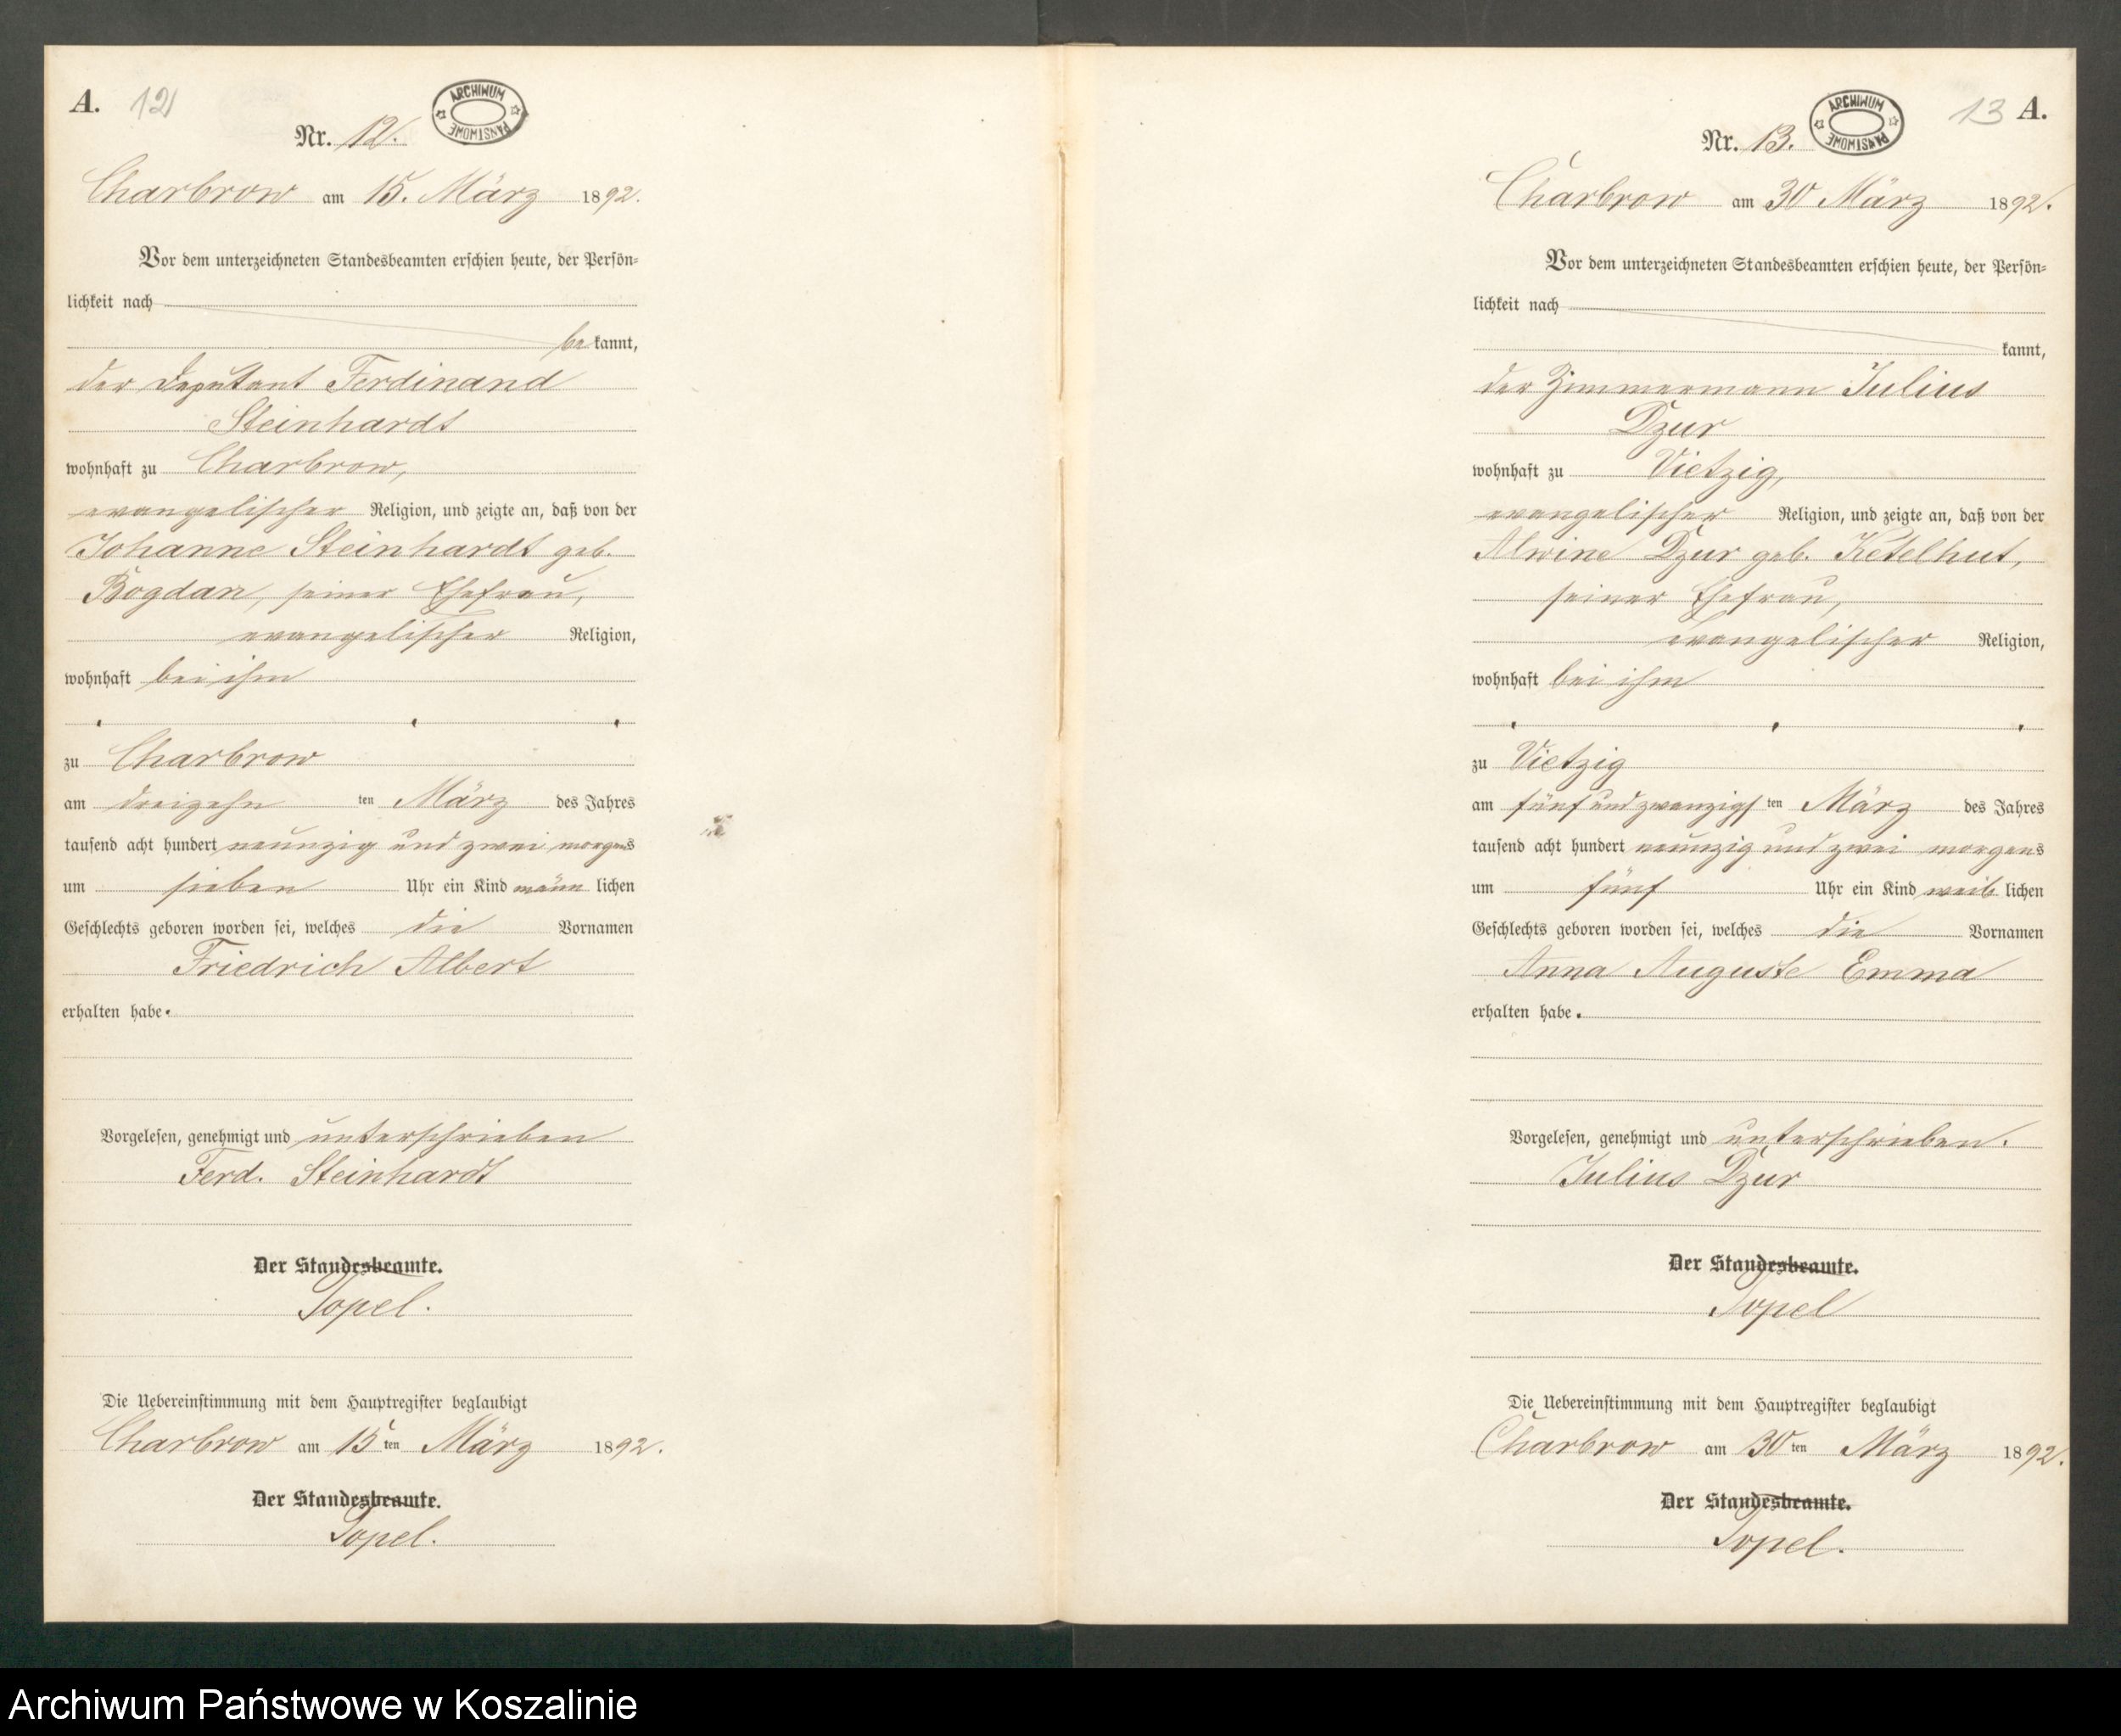 A. 12
ARCHIWUM PAŃSTWOWE
Nr. 12.
Charbrow am 15. März 1892.
Vor dem unterzeichneten Standesbeamten erschien heute, der Persön-
lichkeit nach
bekannt,
der Deputant Ferdinand
Steinhardt
wohnhaft zu Charbrow,
evangelischer Religion, und zeigte an, daß von der
Johanne Steinhardt geb.
Bogdan, seiner Ehefrau,
evangelischer Religion,
wohnhaft bei ihm
zu Charbrow
am dreizehn ten März des Jahres
tausend acht hundert neunzig und zwei morgens
um sieben Uhr ein Kind männlichen
Geschlechts geboren worden sei, welches die Vornamen
Friedrich Albert
erhalten habe.
Vorgelesen, genehmigt und unterschrieben
Ferd. Steinhardt
Der Standesbeamte.
Topel.
Die Uebereinstimmung mit dem Hauptregister beglaubigt
Charbrow am 15ten März 1892.
Der Standesbeamte.
Topel.
13 A.
ARCHIWUM PAŃSTWOWE
Nr. 13.
Charbrow am 30 März 1892.
Vor dem unterzeichneten Standesbeamten erschien heute, der Persön-
lichkeit nach
kannt,
der Zimmermann Julius
Dzur
wohnhaft zu Vietzig,
evangelischer Religion, und zeigte an, daß von der
Alwine Dzur geb. Ketelhut,
seiner Ehefrau,
evangelischer Religion,
wohnhaft bei ihm
zu Vietzig
am fünfundzwanzigsten März des Jahres
tausend acht hundert neunzig und zwei morgens
um fünf Uhr ein Kind weiblichen
Geschlechts geboren worden sei, welches die Vornamen
Anna Auguste Emma
erhalten habe.
Vorgelesen, genehmigt und unterschrieben.
Julius Dzur
Der Standesbeamte.
Topel
Die Uebereinstimmung mit dem Hauptregister beglaubigt
Charbrow am 30ten März 1892.
Der Standesbeamte.
Topel.
Archiwum Państwowe w Koszalinie